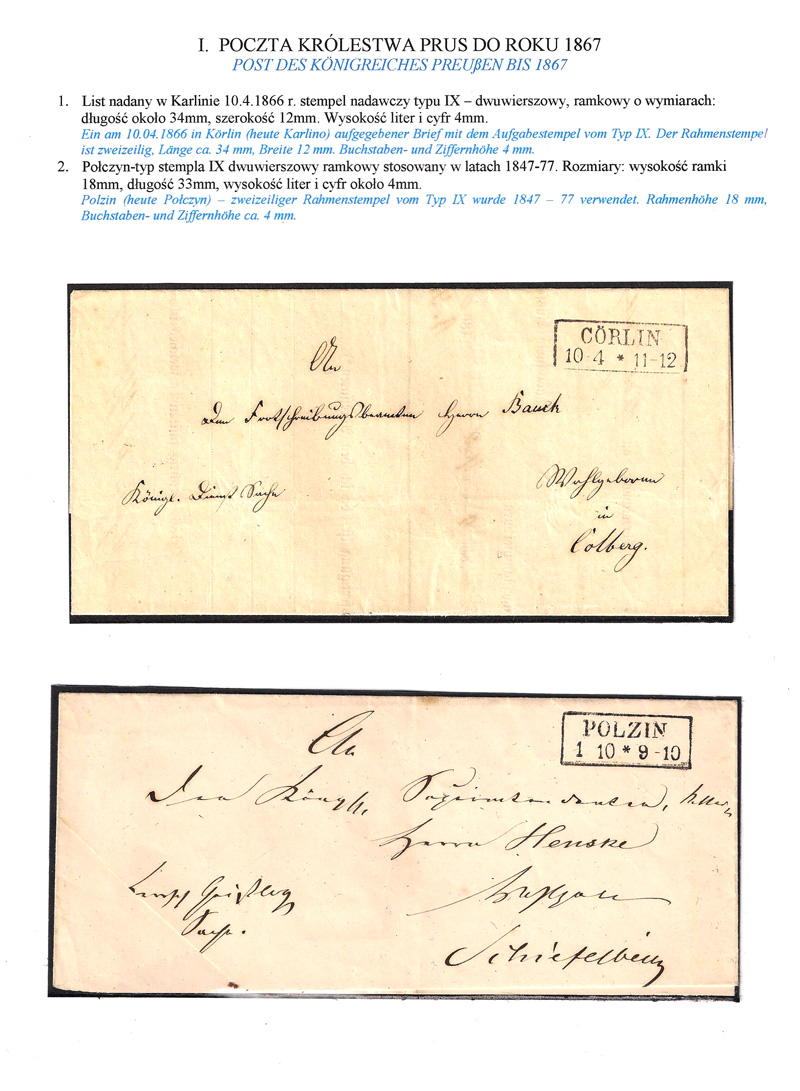 I. POCZTA KRÓLESTWA PRUS DO ROKU 1867
POST DES KÖNIGREICHES PREUßEN BIS 1867
1. List nadany w Karlinie 10.4.1866 r. stempel nadawczy typu IX – dwuwierszowy, ramkowy o wymiarach:
długość około 34mm, szerokość 12mm. Wysokość liter i cyfr 4mm.
Ein am 10.04.1866 in Körlin (heute Karlino) aufgegebener Brief mit dem Aufgabestempel vom Typ IX. Der Rahmenstempel
ist zweizeilig, Länge ca. 34 mm, Breite 12 mm. Buchstaben- und Ziffernhöhe 4 mm.
2. Połczyn-typ stempla IX dwuwierszowy ramkowy stosowany w latach 1847-77. Rozmiary: wysokość ramki
18mm, długość 33mm, wysokość liter i cyfr około 4mm.
Polzin (heute Połczyn) – zweizeiliger Rahmenstempel vom Typ IX wurde 1847 – 77 verwendet. Rahmenhöhe 18 mm,
Buchstaben- und Ziffernhöhe ca. 4 mm.
CÖRLIN
10 4 * 11-12
An
Den Fortschreibungsbeamten Herrn Bauck
Königl. Dienst Sache
Wohlgeboren
in
Colberg.
POLZIN
1 10 * 9-10
An
Den Königl. Superintendenten,
Herrn Henske
Sache.
Schiefelbein